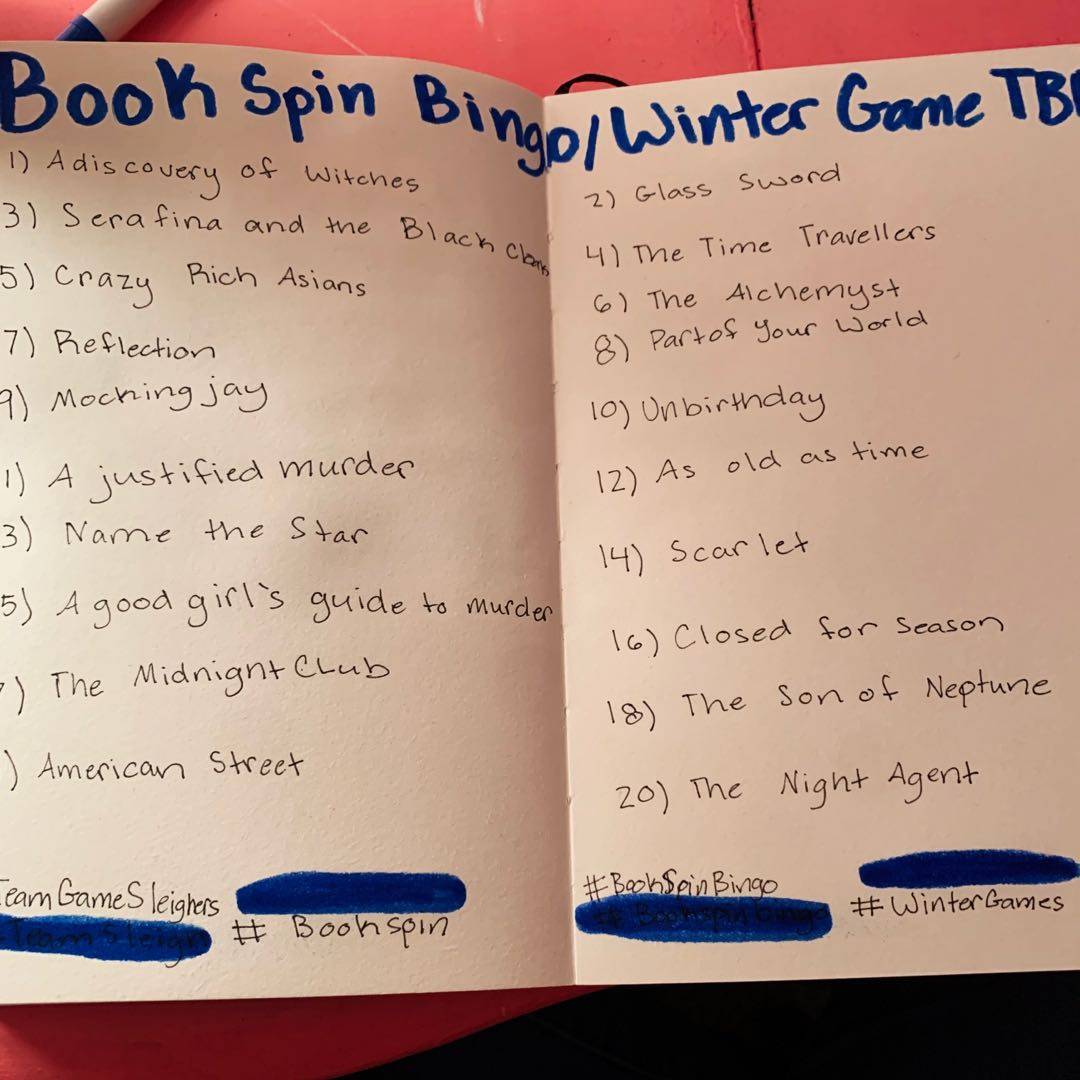 Book Spin Bingo/Winter Game TB
1) A discovery of Witches
3) Serafina and the Black Cloak
5) Crazy Rich Asians
7) Reflection
9) Mockingjay
1) A justified murder
3) Name the Star
5) A good girl's guide to murder
) The Midnight Club
) American Street
TeamGameSleighers
TeamSleigh
# Bookspin
2) Glass Sword
4) The Time Travellers
6) The Alchemyst
8) Part of Your World
10) Unbirthday
12) As old as time
14) Scarlet
16) Closed for Season
18) The Son of Neptune
20) The Night Agent
#BookSpinBingo
# Bookspinbingo
#WinterGames